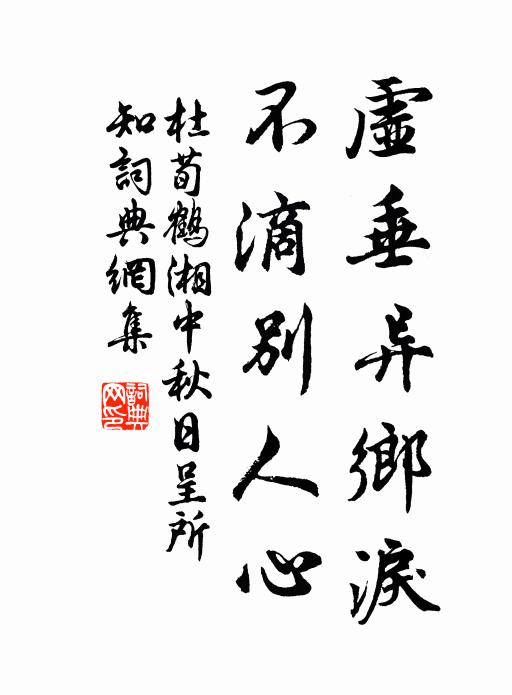 虛垂异鄉淚
不滴別人心
杜荀鶴湘中秋日呈所
知詞典網集
詞典
网印